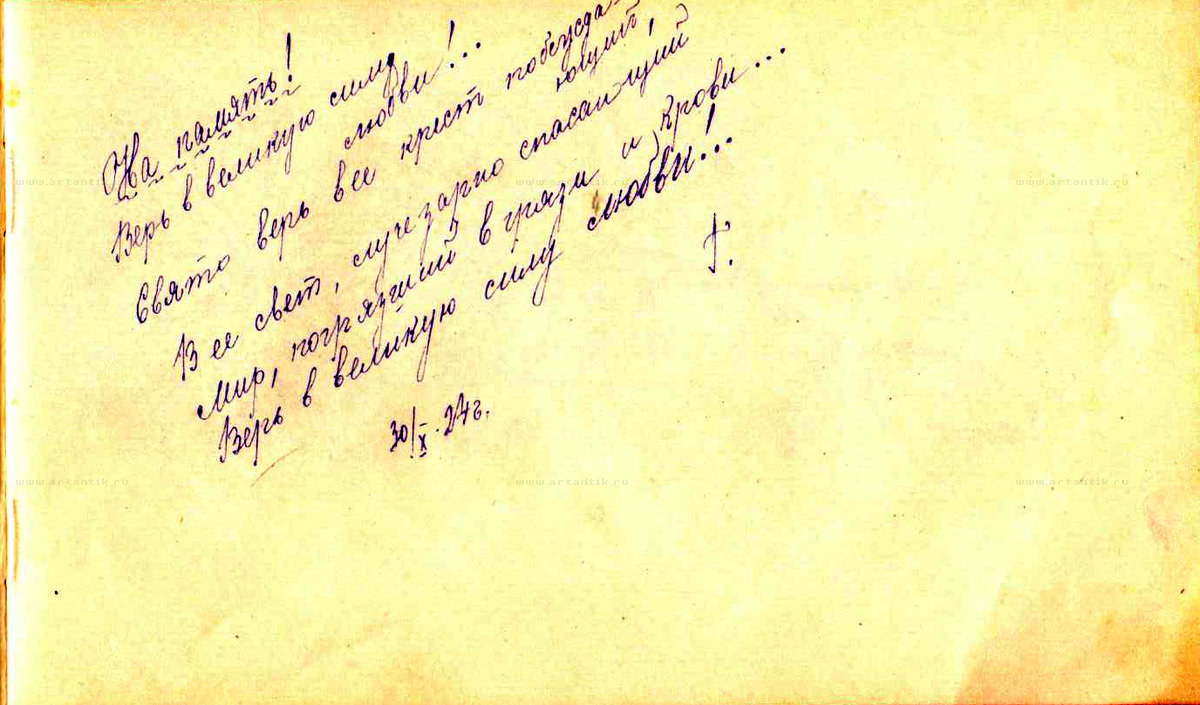 На память!
Верь в великую силу
любви!..
Свято верь в ее крест побеждаю-
ющий,
В ее свет, лучезарно спасающий
Мир, погрязший в грязи и крови...
Верь в великую силу любви!..
30/X. 24г.
www.artantik.ru www.artantik.ru www.artantik.ru
www.artantik.ru www.artantik.ru www.artantik.ru